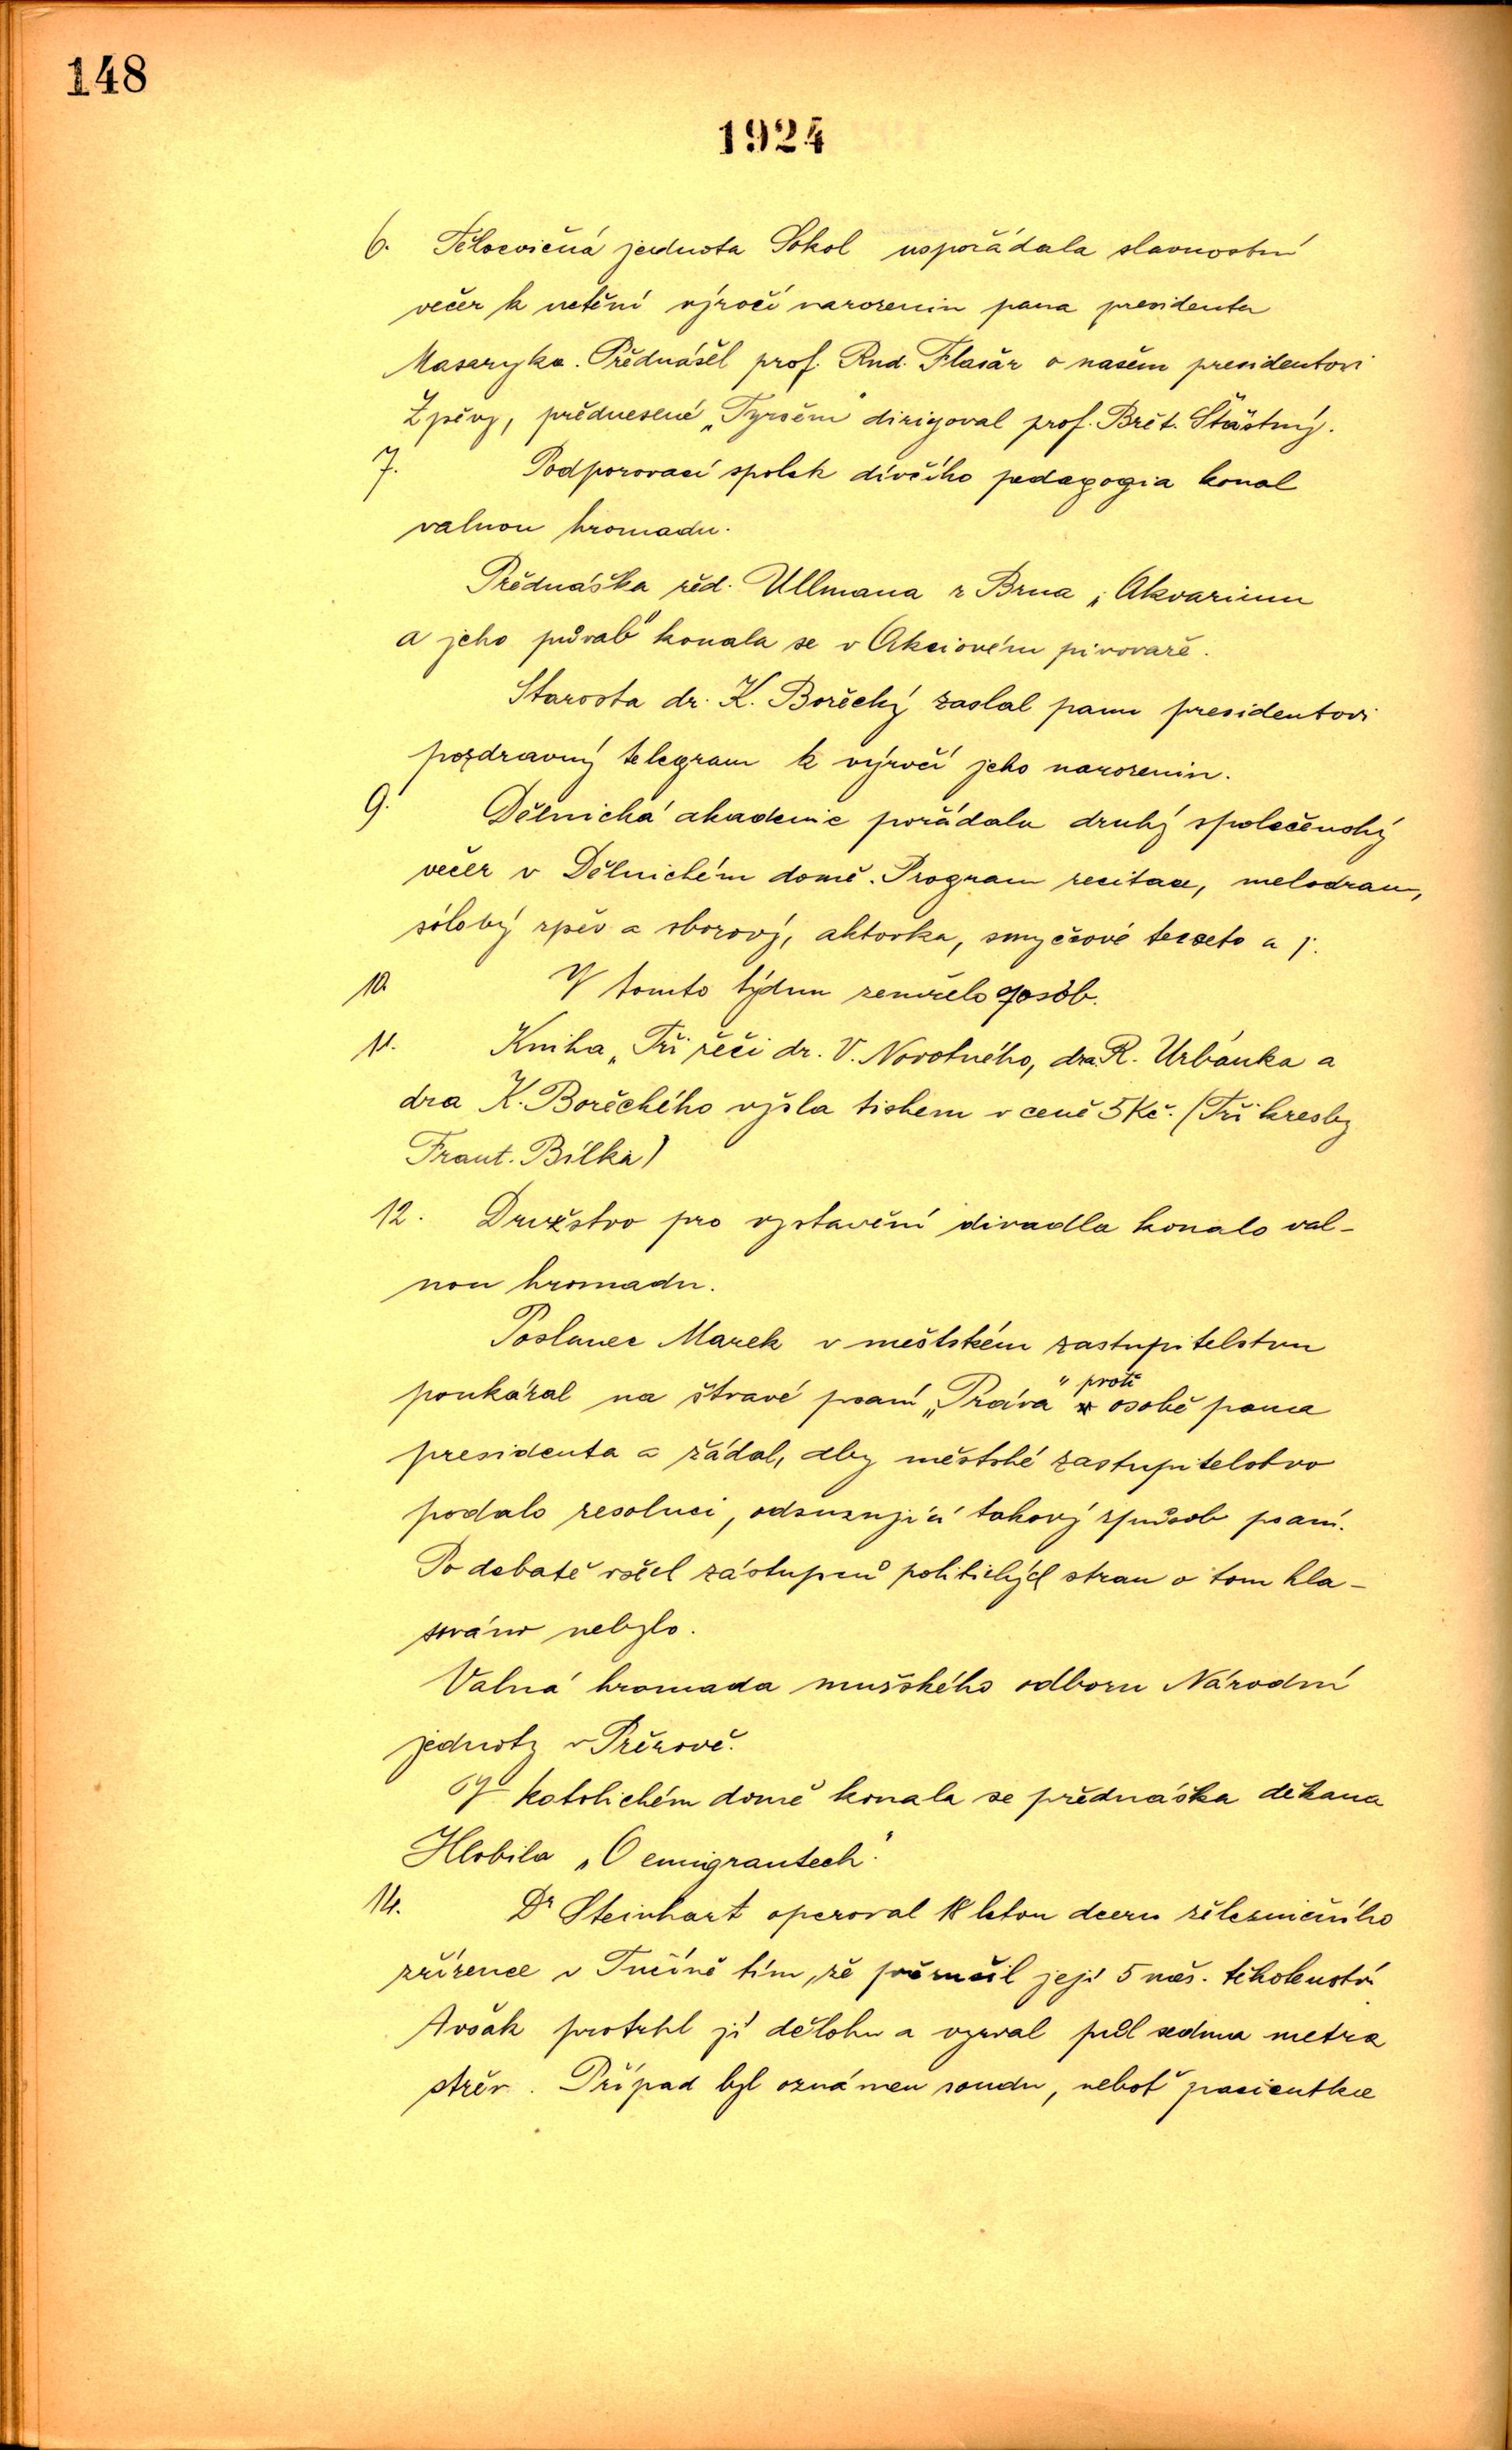 148
1924
6. Tělocvičná jednota Sokol uspořádala slavnostní
večer k uctění výročí narozenin pana presidenta
Masaryka. Přednášěl prof. Rud. Flasár o našem presidentovi
Zpěvy, prědnesené „Tyrsěm" dirigoval prof. Brět. Štastný.
7. Podporovací spolek dívčího pedagogia konal
valnou hromadu.
Prědnáška réd. Ullmana z Brna „Akvarium
a jeho půvab" konala se v Akciovém pivovaře.
Starosta dr. K. Borěcký zaslal panu presidentovi
pozdravný telegram k výročí jeho narozenin.
9. Dělnická akademie porádala druhý společenský
večer v Dělnickém domě. Program recitace, melodram,
sólový zpěv a sborový, aktovka, smyčcové terceto a j.
10. V tomto týdnu zemrělo 9 osob.
11. Kniha „Tři řeči dr. V. Novotného, dra R. Urbánka a
dra K. Borěckého vyšla tiskem v ceně 5 Kč. (Tři kresby
Frant. Bílka)
12. Družstvo pro vystavění divadla konalo val-
nou hromadu.
Poslanec Marek v městském zastupitelstvu
poukázal na štvavé psaní „Práva" proti osobě pana
presidenta a žádal, aby městské zastupitelstvo
podalo resoluci, odsuzující takový způsob psaní.
Po debatě všech zástupců politických stran o tom hla-
sováno nebylo.
Valná hromada mužského odboru Národní
jednoty v Přerově.
V katolickém domě konala se prědnáška děkana
Hlobila „O emigrantech".
14. Dr Steinhart operoval 18 letou dceru železničního
zřízence v Tučíně tím, že přerušil její 5 měs. těhotenství
Avšak protrhl jí dělohu a vyrval půl sedma metra
strěv. Případ byl oznámen soudu, neboť pacientka